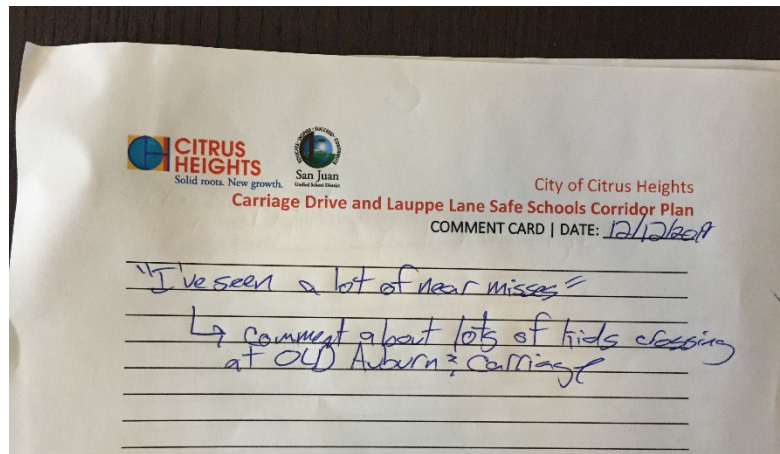 CITRUS
HEIGHTS
Solid roots. New growth.
San Juan
Unified School District
City of Citrus Heights
Carriage Drive and Lauppe Lane Safe Schools Corridor Plan
COMMENT CARD | DATE: 12/12/2019
"I've seen a lot of near misses"
↳ comment about lots of kids crossing
at OLD Auburn & Carriage